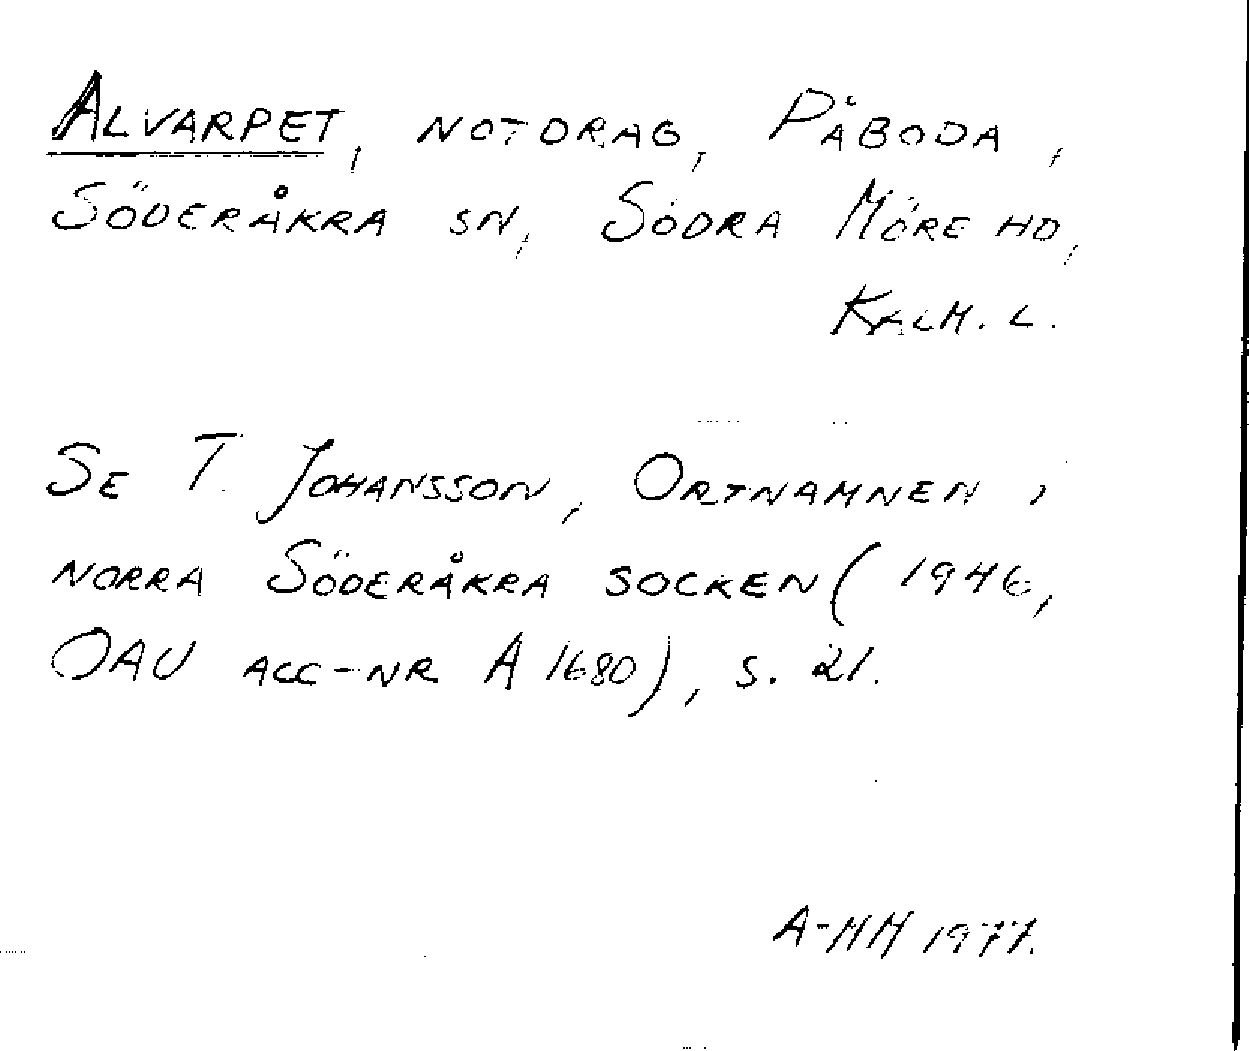 ALVARPET, NOTDRAG, PÅBODA,
SÖDERÅKRA SN, SÖDRA MÖRE HD,
KALM. L.
SE T. JOHANSSON, ORTNAMNEN I
NORRA SÖDERÅKRA SOCKEN (1946,
OAU ACC-NR A 1680), S. 21.
A-MM 1977.